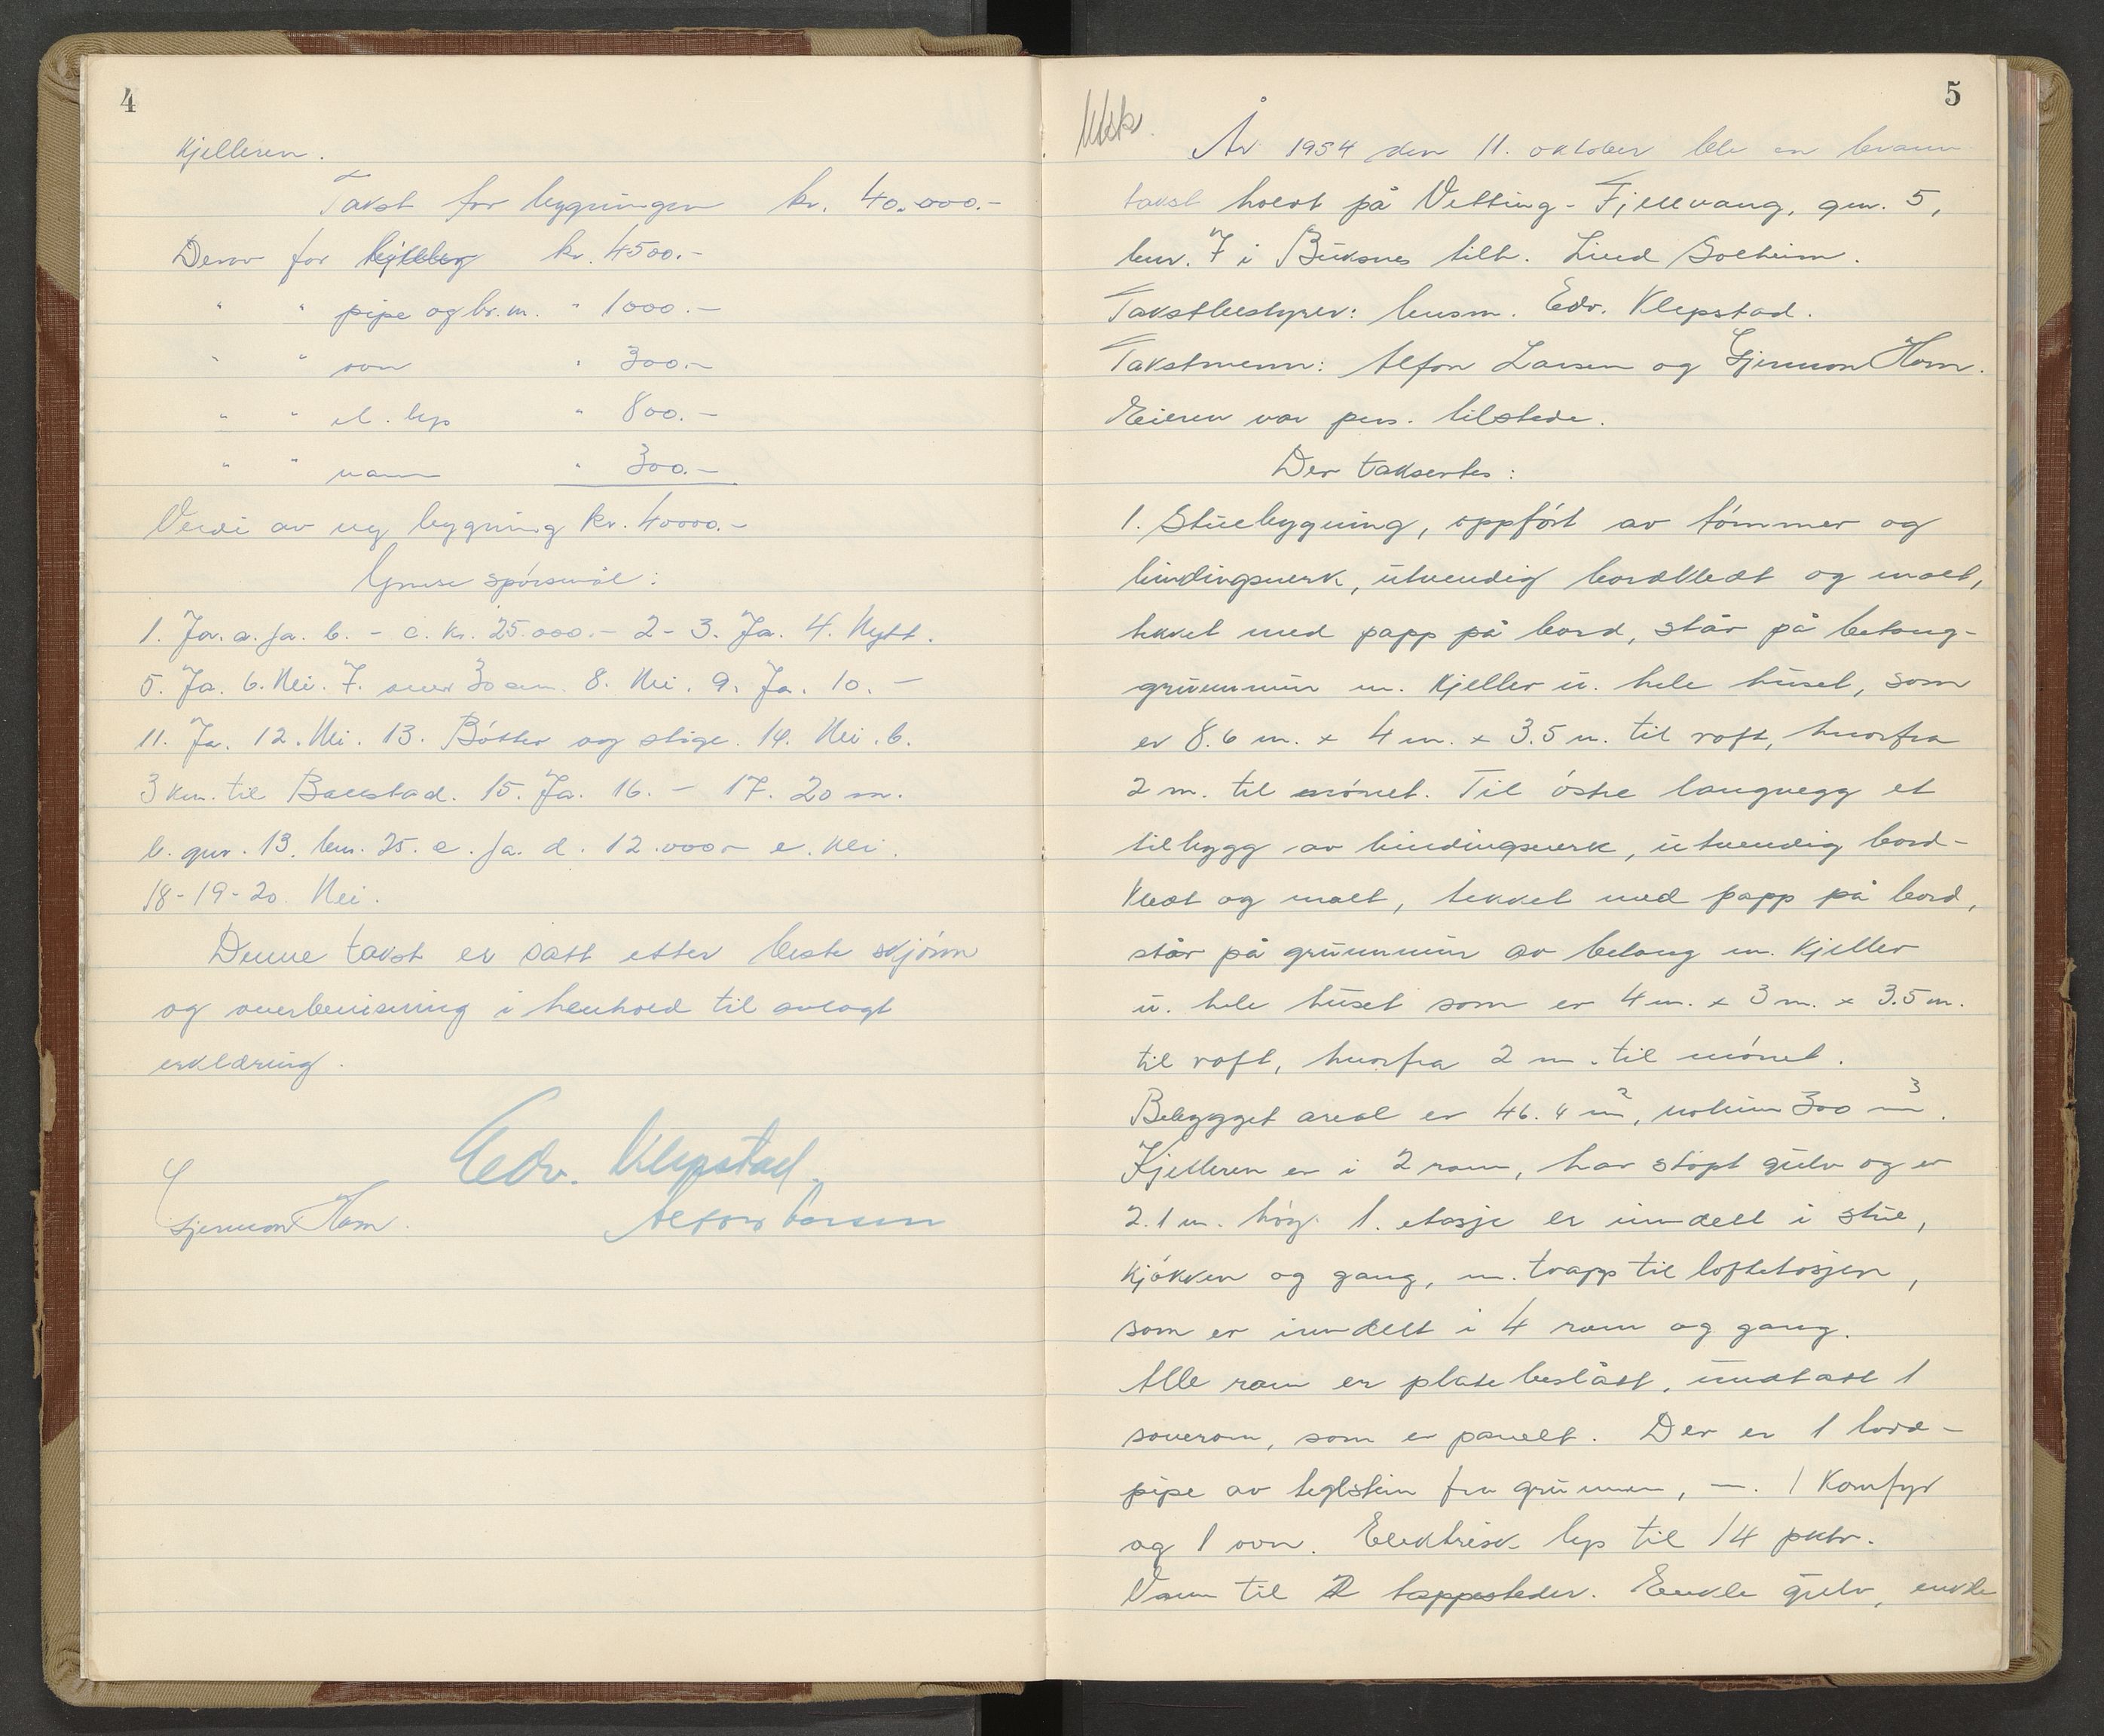 4
Kjelleren.
Takst for bygningen kr. 40.000.-
Derav for kr. 4500.-
" " pipe og br.m. " 1000.-
" " ovn " 300.-
" " el. lys " 800.-
" " vann " 300.-
Verdi av ny bygning kr. 40000.-
Ymse spørsmål:
1. Ja. a. Ja. b. - c. Kr. 25.000.- 2- 3. Ja. 4. Nytt.
5. Ja. 6. Nei. 7. over 30 cm. 8. Nei. 9. Ja. 10. -
11. Ja. 12. Nei. 13. Bøtter og stige. 14. Nei. b.
3 km. til Ballstad. 15. Ja. 16. - 17. 20 m.
b. gnr. 13. bnr. 25. c. Ja. d. 12.000.- e. Nei.
18-19-20. Nei.
Denne takst er satt etter beste skjønn
og overbevisning i henhold til avlagt
erklæring.
Edv. Klepstad.
Gjermon Horn. Alfon Larsen
5
År 1954 den 11. oktober ble en brann
takst holdt på Vetting-Fjellvang, gnr. 5,
bnr. 7 i Buksnes tilh. Lind Solheim.
Takstbestyrer: lensm. Edv. Klepstad.
Takstmenn: Alfon Larsen og Gjermon Horn.
Eieren var pers. tilstede.
Der taksertes:
1. Stuebygning, oppført av tømmer og
bindingsverk, utvendig bordkledt og malt,
tekket med papp på bord, står på betong-
grunnmur m. kjeller u. hele huset, som
er 8.6 m. x 4 m. x 3.5 m. til roft, hvorfra
2 m. til mønet. Til østre langvegg et
tilbygg av bindingsverk, utvendig bord-
kledt og malt, tekket med papp på bord,
står på grunnmur av betong m. kjeller
u. hele huset som er 4 m. x 3 m. x 3.5 m.
til roft, hvorfra 2 m. til mønet.
Bebygget areal er 46.4 m², volum 300 m³.
Kjelleren er i 2 rom, har støpt gulv og er
2.1 m. høg. 1. etasje er inndelt i stue,
kjøkken og gang, m. trapp til loftetasjen,
som er inndelt i 4 rom og gang.
Alle rom er platebeslått, undtatt 1
soverom, som er panelt. Der er 1 lovd-
pipe av teglstein fra grunnen, -. 1 Komfyr
og 1 ovn. Elektrisk lys til 14 pktr.
Vann til 2 tappesteder. Enkle gulv, enkle